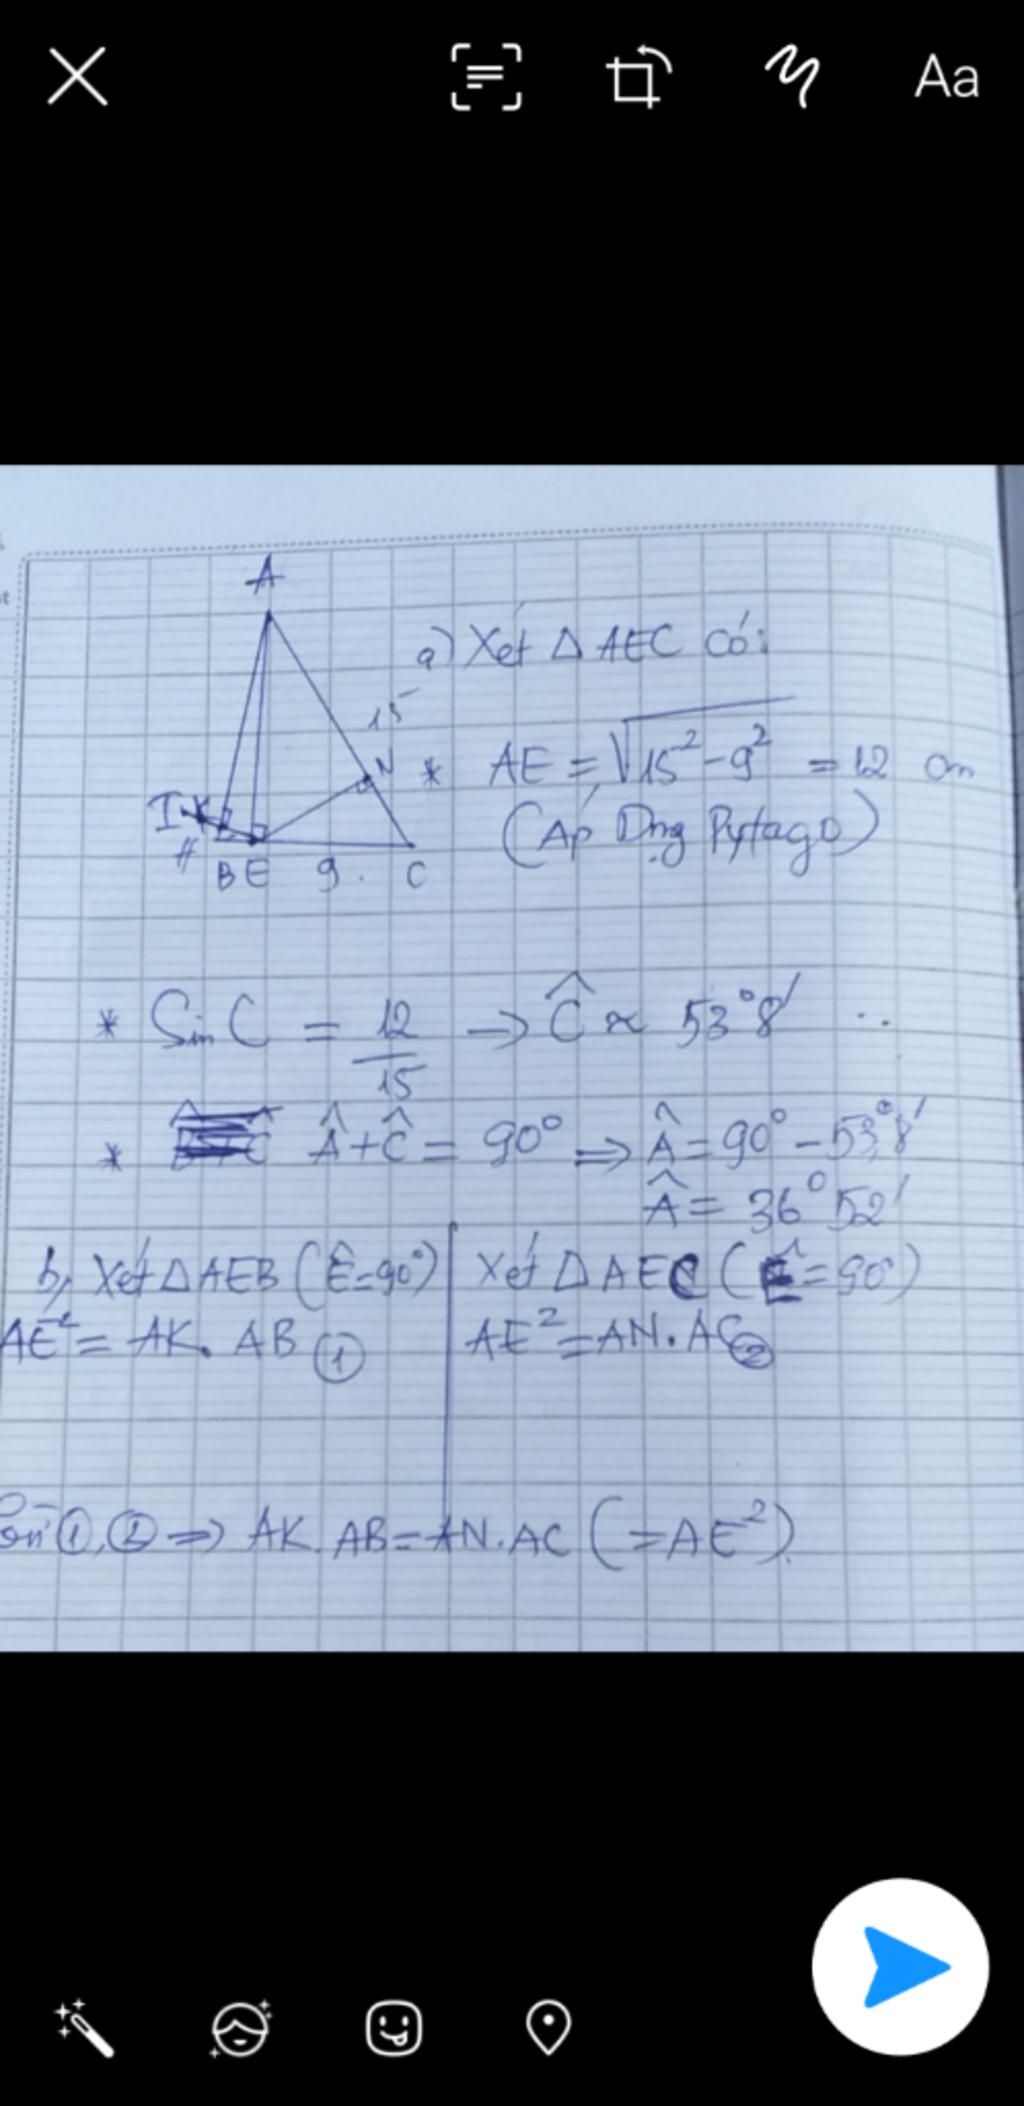 Aa
A
15
N
I K
H
B E 9 C
a) Xét Δ AEC có:
* AE = √15² - 9² = 12 cm
(Áp Dng Pytago)
* Sin C = 12/15 → Ĉ ≈ 53°8'
* Â + Ĉ = 90° ⇒ Â = 90° - 53°8'
Â = 36°52'
b, Xét Δ AEB (Ê = 90°)
AE² = AK. AB ①
Xét Δ AEC (Ê = 90°)
AE² = AN. AC ②
①, ② ⇒ AK. AB = AN. AC (= AE²).